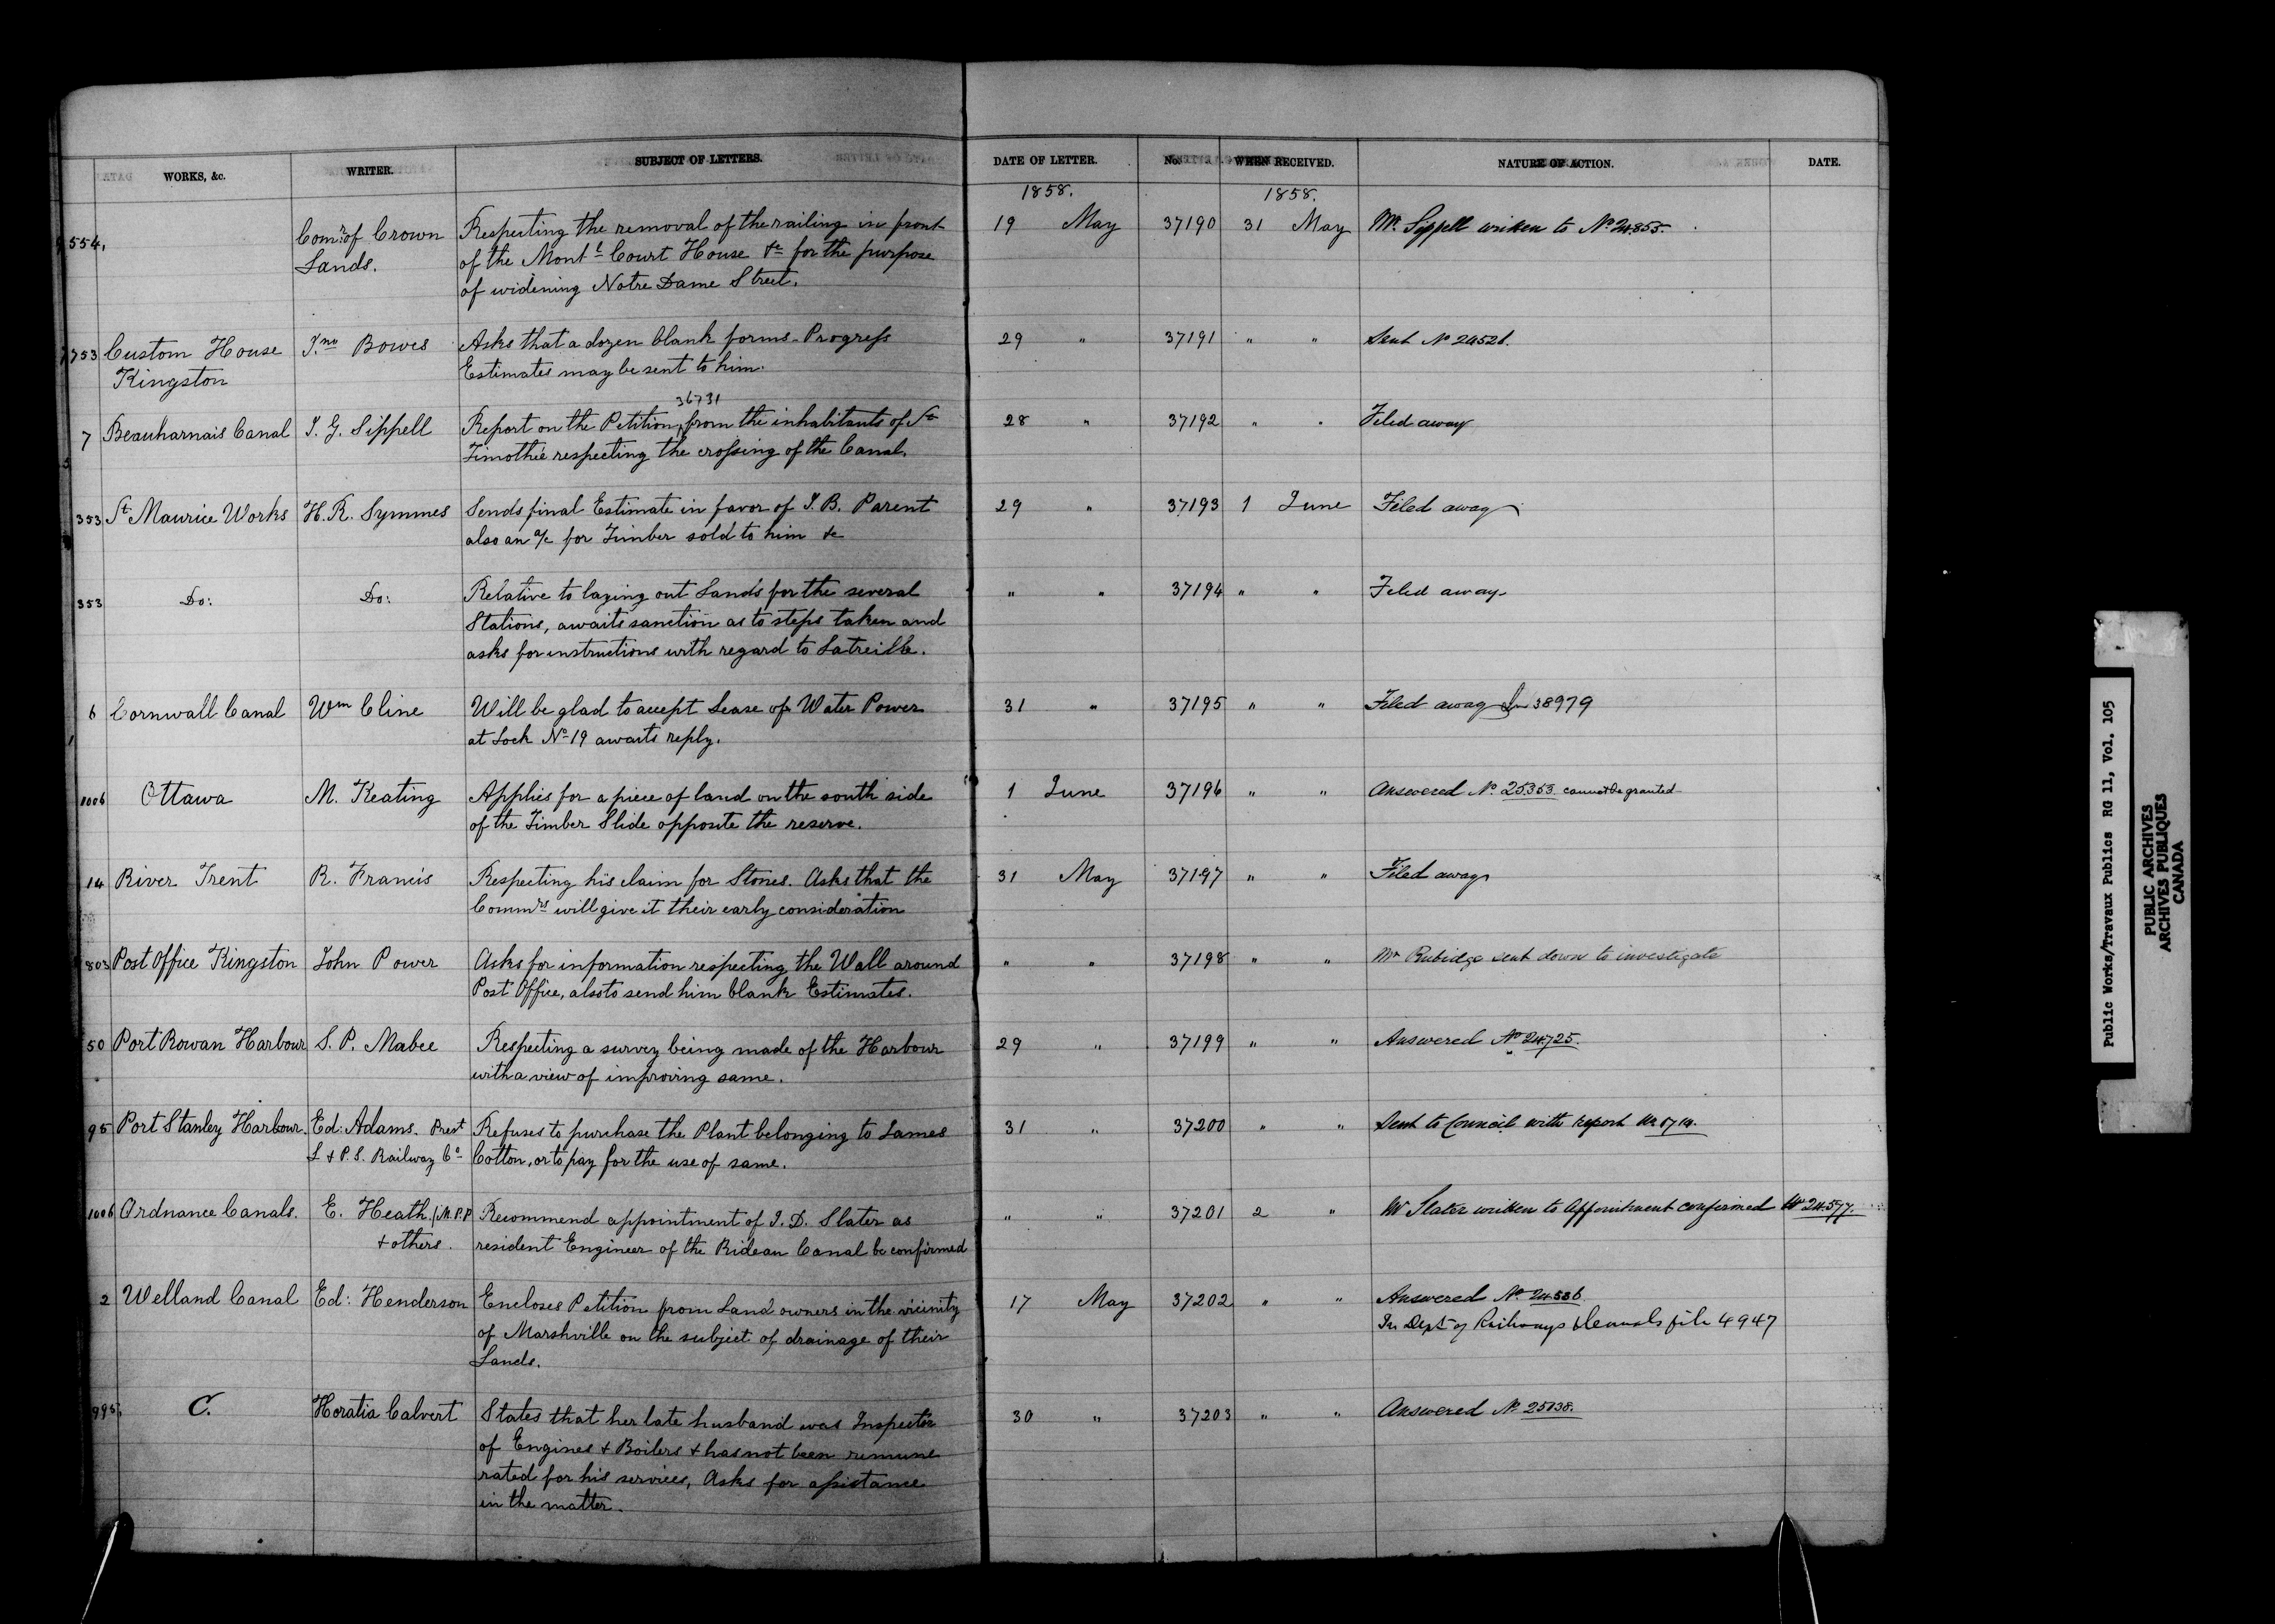 WORKS, &c. WRITER. SUBJECT OF LETTERS. DATE OF LETTER. No. WHEN RECEIVED. NATURE OF ACTION. DATE.
1858. 1858.
554, Comr. of Crown Respecting the removal of the railing in front 19 May 37190 31 May Mr. Sippell written to No 24853.
Lands. of the Montl Court House &c for the purpose
of widening Notre Dame Street.
753 Custom House Jno Bowes Asks that a dozen blank forms - Progress 29 " 37191 " " Sent No 24528.
Kingston Estimates may be sent to him.
36731
7 Beauharnais Canal J. G. Sippell Report on the Petition from the inhabitants of St 28 " 37192 " " Filed away
Timothée respecting the crossing of the Canal.
353 St Maurice Works H. R. Symmes Sends final Estimate in favor of J. B. Parent 29 " 37193 1 June Filed away
also an a/c for Timber sold to him &c
353 Do: Do: Relative to laying out Lands for the several " " 37194 " " Filed away
Stations, awaits sanction as to steps taken and
asks for instructions with regard to Latreille.
6 Cornwall Canal Wm Cline Will be glad to accept Lease of Water Power 31 " 37195 " " Filed away See 38979
at Lock No 19 awaits reply.
1006 Ottawa M. Keating Applies for a piece of land on the south side 1 June 37196 " " Answered No 25353. cannot be granted
of the Timber Slide opposite the reserve.
14 River Trent R. Francis Respecting his claim for Stones. Asks that the 31 May 37197 " " Filed away
Commrs will give it their early consideration
803 Post Office Kingston John Power Asks for information respecting the Wall around " " 37198 " " Mr Rubidge sent down to investigate
Post Office, also to send him blank Estimates.
50 Port Rowan Harbour S. P. Mabee Respecting a survey being made of the Harbour 29 " 37199 " " Answered No 24725.
with a view of improving same.
95 Port Stanley Harbour. Ed: Adams. Prest Refuses to purchase the Plant belonging to James 31 " 37200 " " Sent to Council with report
L & P. S. Railway Co Cotton, or to pay for the use of same.
1006 Ordnance Canals. E. Heath M.P.P Recommend appointment of J. D. Slater as " " 37201 2 " Mr Slater written to Appointment confirmed No 24577.
& others. resident Engineer of the Rideau Canal be confirmed
2 Welland Canal Ed: Henderson Encloses Petition from Land owners in the vicinity 17 May 37202 " " Answered No 24586
of Marshville on the subject of drainage of their In Dept of Railways & Canals file 4947
Lands.
995, C. Horatia Calvert States that her late husband was Inspector 30 " 37203 " " Answered No 25038.
of Engines & Boilers & has not been remune
rated for his services, Asks for assistance
in the matter.
Public Works/Travaux Publics RG 11, Vol. 105
PUBLIC ARCHIVES
ARCHIVES PUBLIQUES
CANADA